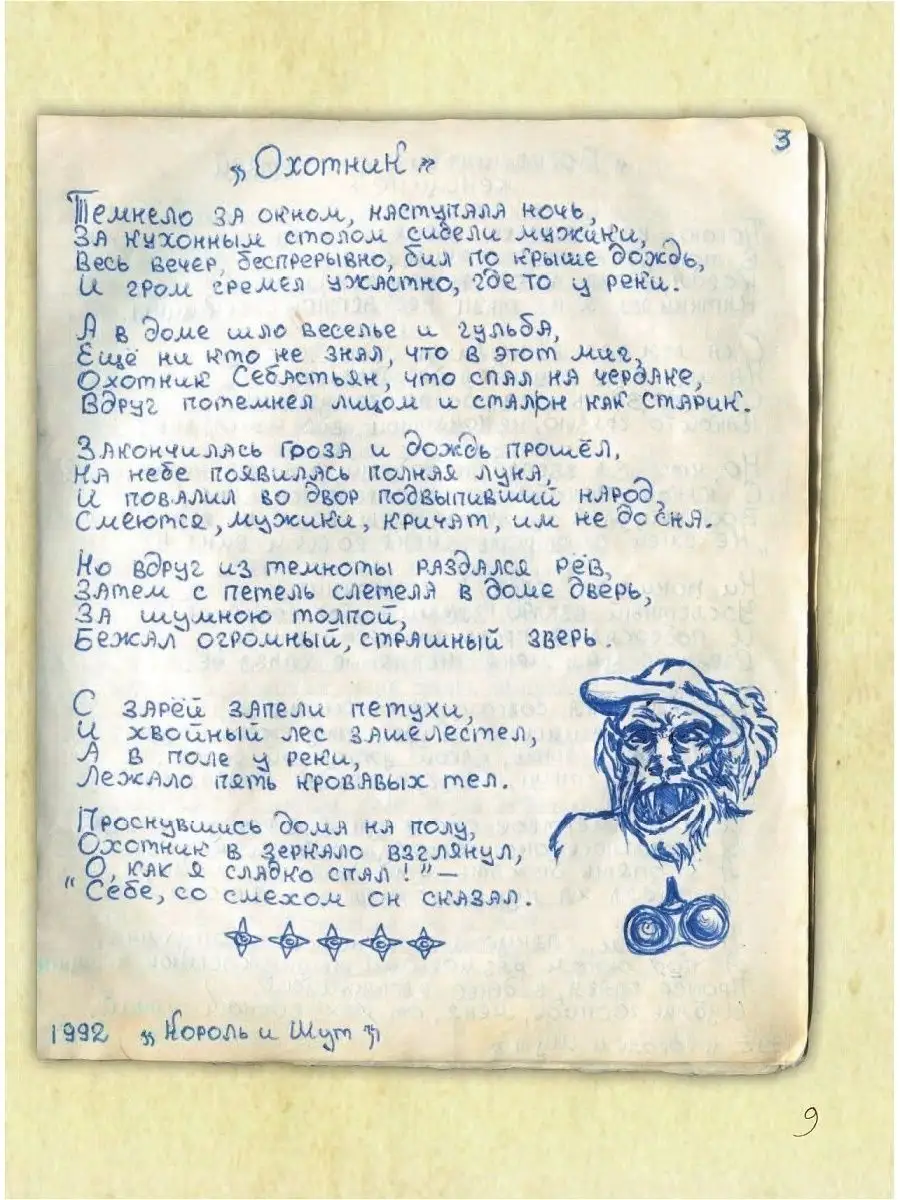 3
„Охотник”
Темнело за окном, наступала ночь,
За кухонным столом сидели мужики,
Весь вечер, беспрерывно, бил по крыше дождь,
И гром гремел ужастно, где то у реки.
А в доме шло веселье и гульба,
Ещё ни кто не знал, что в этот миг,
Охотник Себастьян, что спал на чердаке,
Вдруг потемнел лицом и стал он как старик.
Закончилась гроза и дождь прошёл,
На небе появилась полная луна,
И повалил во двор подвыпивший народ,
Смеются, мужики, кричат, им не до сна.
Но вдруг из темноты раздался рёв,
Затем с петель слетела в доме дверь,
За шумною толпой,
Бежал огромный, страшный зверь.
С зарёй запели петухи,
И хвойный лес зашелестел,
А в поле у реки,
Лежало пять кровавых тел.
Проснувшись дома на полу,
Охотник в зеркало взглянул,
О, как я сладко спал!“—
"Себе, со смехом он сказал.
1992 „Король и Шут”
9